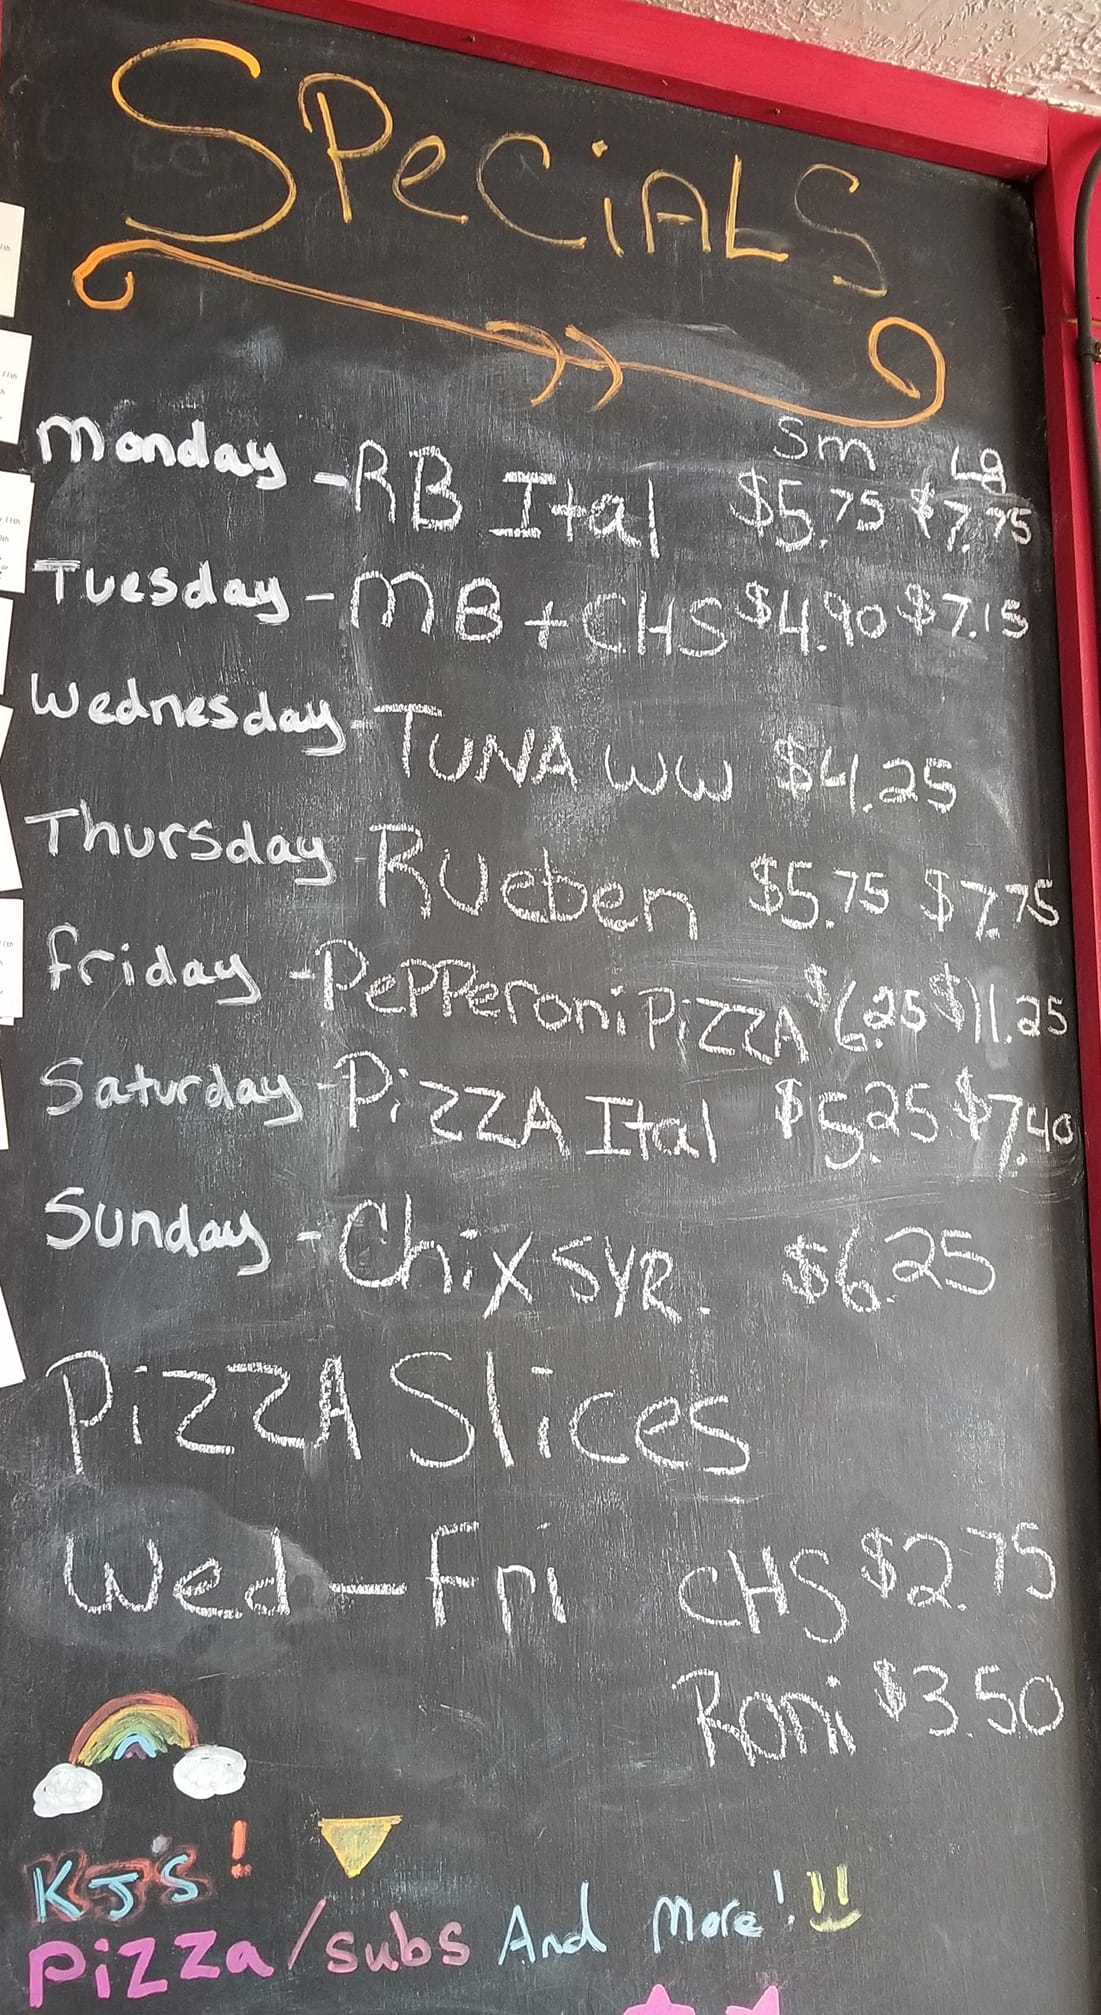 SPeCiALS
Sm Lg
Monday - RB Ital $5.75 $7.75
Tuesday - MB + CHS $4.90 $7.15
Wednesday - TUNA WW $4.25
Thursday - RUeben $5.75 $7.75
friday - PePPeroni PiZZA $6.25 $11.25
Saturday - PiZZA Ital $5.25 $7.40
Sunday - Chix SYR. $6.25
PiZZA Slices
Wed - Fri CHS $2.75
Roni $3.50
KJ's!
Pizza/subs And More!